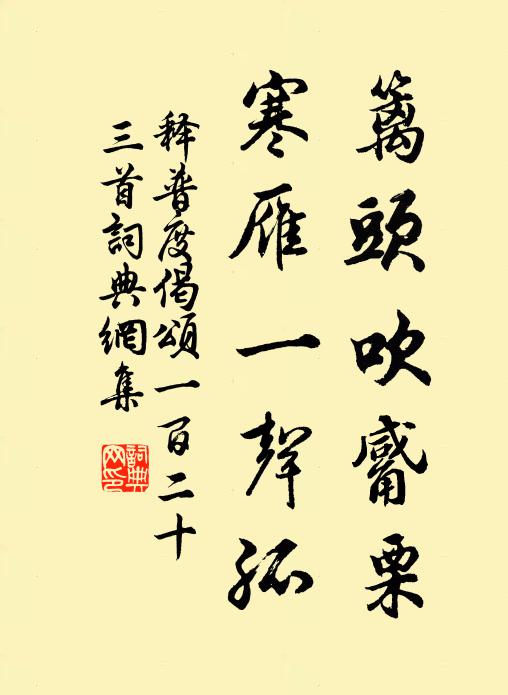 篱頭吹觱栗
寒雁一聲孤
释普度偈頌一百二十
三首詞典網集
詞典网印